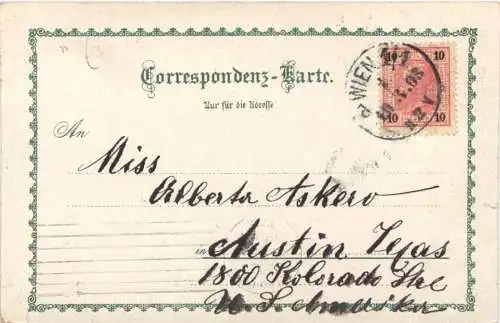 Correspondenz-Karte.
Nur für die Adresse
10 10
WIEN
10 10
An
Miss
Alberta Askew
in Austin Texas
1800 Kolorado Str
U. S. Amerika